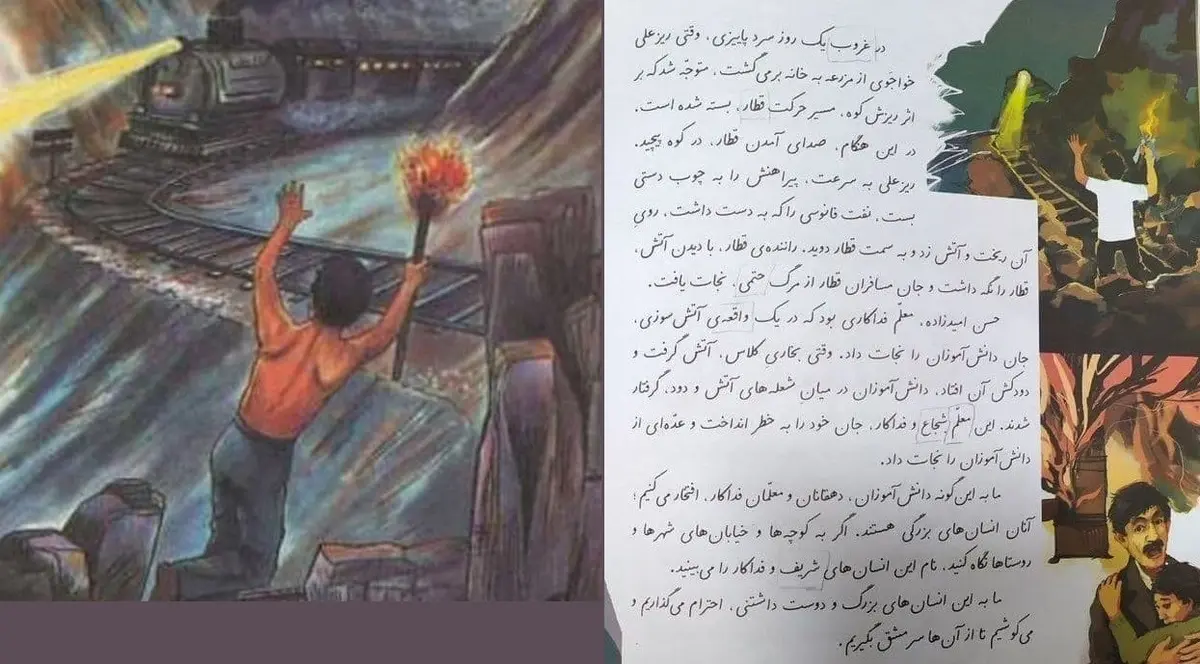 در غروب یک روز سرد پاییزی، وقتی ریزعلی
خواجوی از مزرعه به خانه برمی‌گشت، متوجّه شد که بر
اثر ریزش کوه، مسیر حرکت قطار، بسته شده است.
در این هنگام، صدای آمدن قطار، در کوه پیچید.
ریزعلی به سرعت، پیراهنش را به چوب دستی
بست، نفت فانوسی را که به دست داشت، روی
آن ریخت و آتش زد و به سمت قطار دوید. راننده‌ی قطار، با دیدن آتش،
قطار را نگه داشت و جان مسافران قطار از مرگ حتمی، نجات یافت.
حسن امیدزاده، معلّم فداکاری بود که در یک واقعه‌ی آتش سوزی،
جان دانش‌آموزان را نجات داد. وقتی بخاریِ کلاس، آتش گرفت و
دودکش آن افتاد، دانش‌آموزان در میان شعله‌های آتش و دود، گرفتار
شدند. این معلّم شجاع و فداکار، جان خود را به خطر انداخت و عدّه‌ای از
دانش‌آموزان را نجات داد.
ما به این‌گونه دانش‌آموزان، دهقانان و معلّمان فداکار، افتخار می‌کنیم؛
آنان انسان‌های بزرگی هستند. اگر به کوچه‌ها و خیابان‌های شهرها و
روستاها نگاه کنید، نام این انسان‌های شریف و فداکار را می‌بینید.
ما به این انسان‌های بزرگ و دوست داشتنی، احترام می‌گذاریم و
می‌کوشیم تا از آن‌ها سرمشق بگیریم.